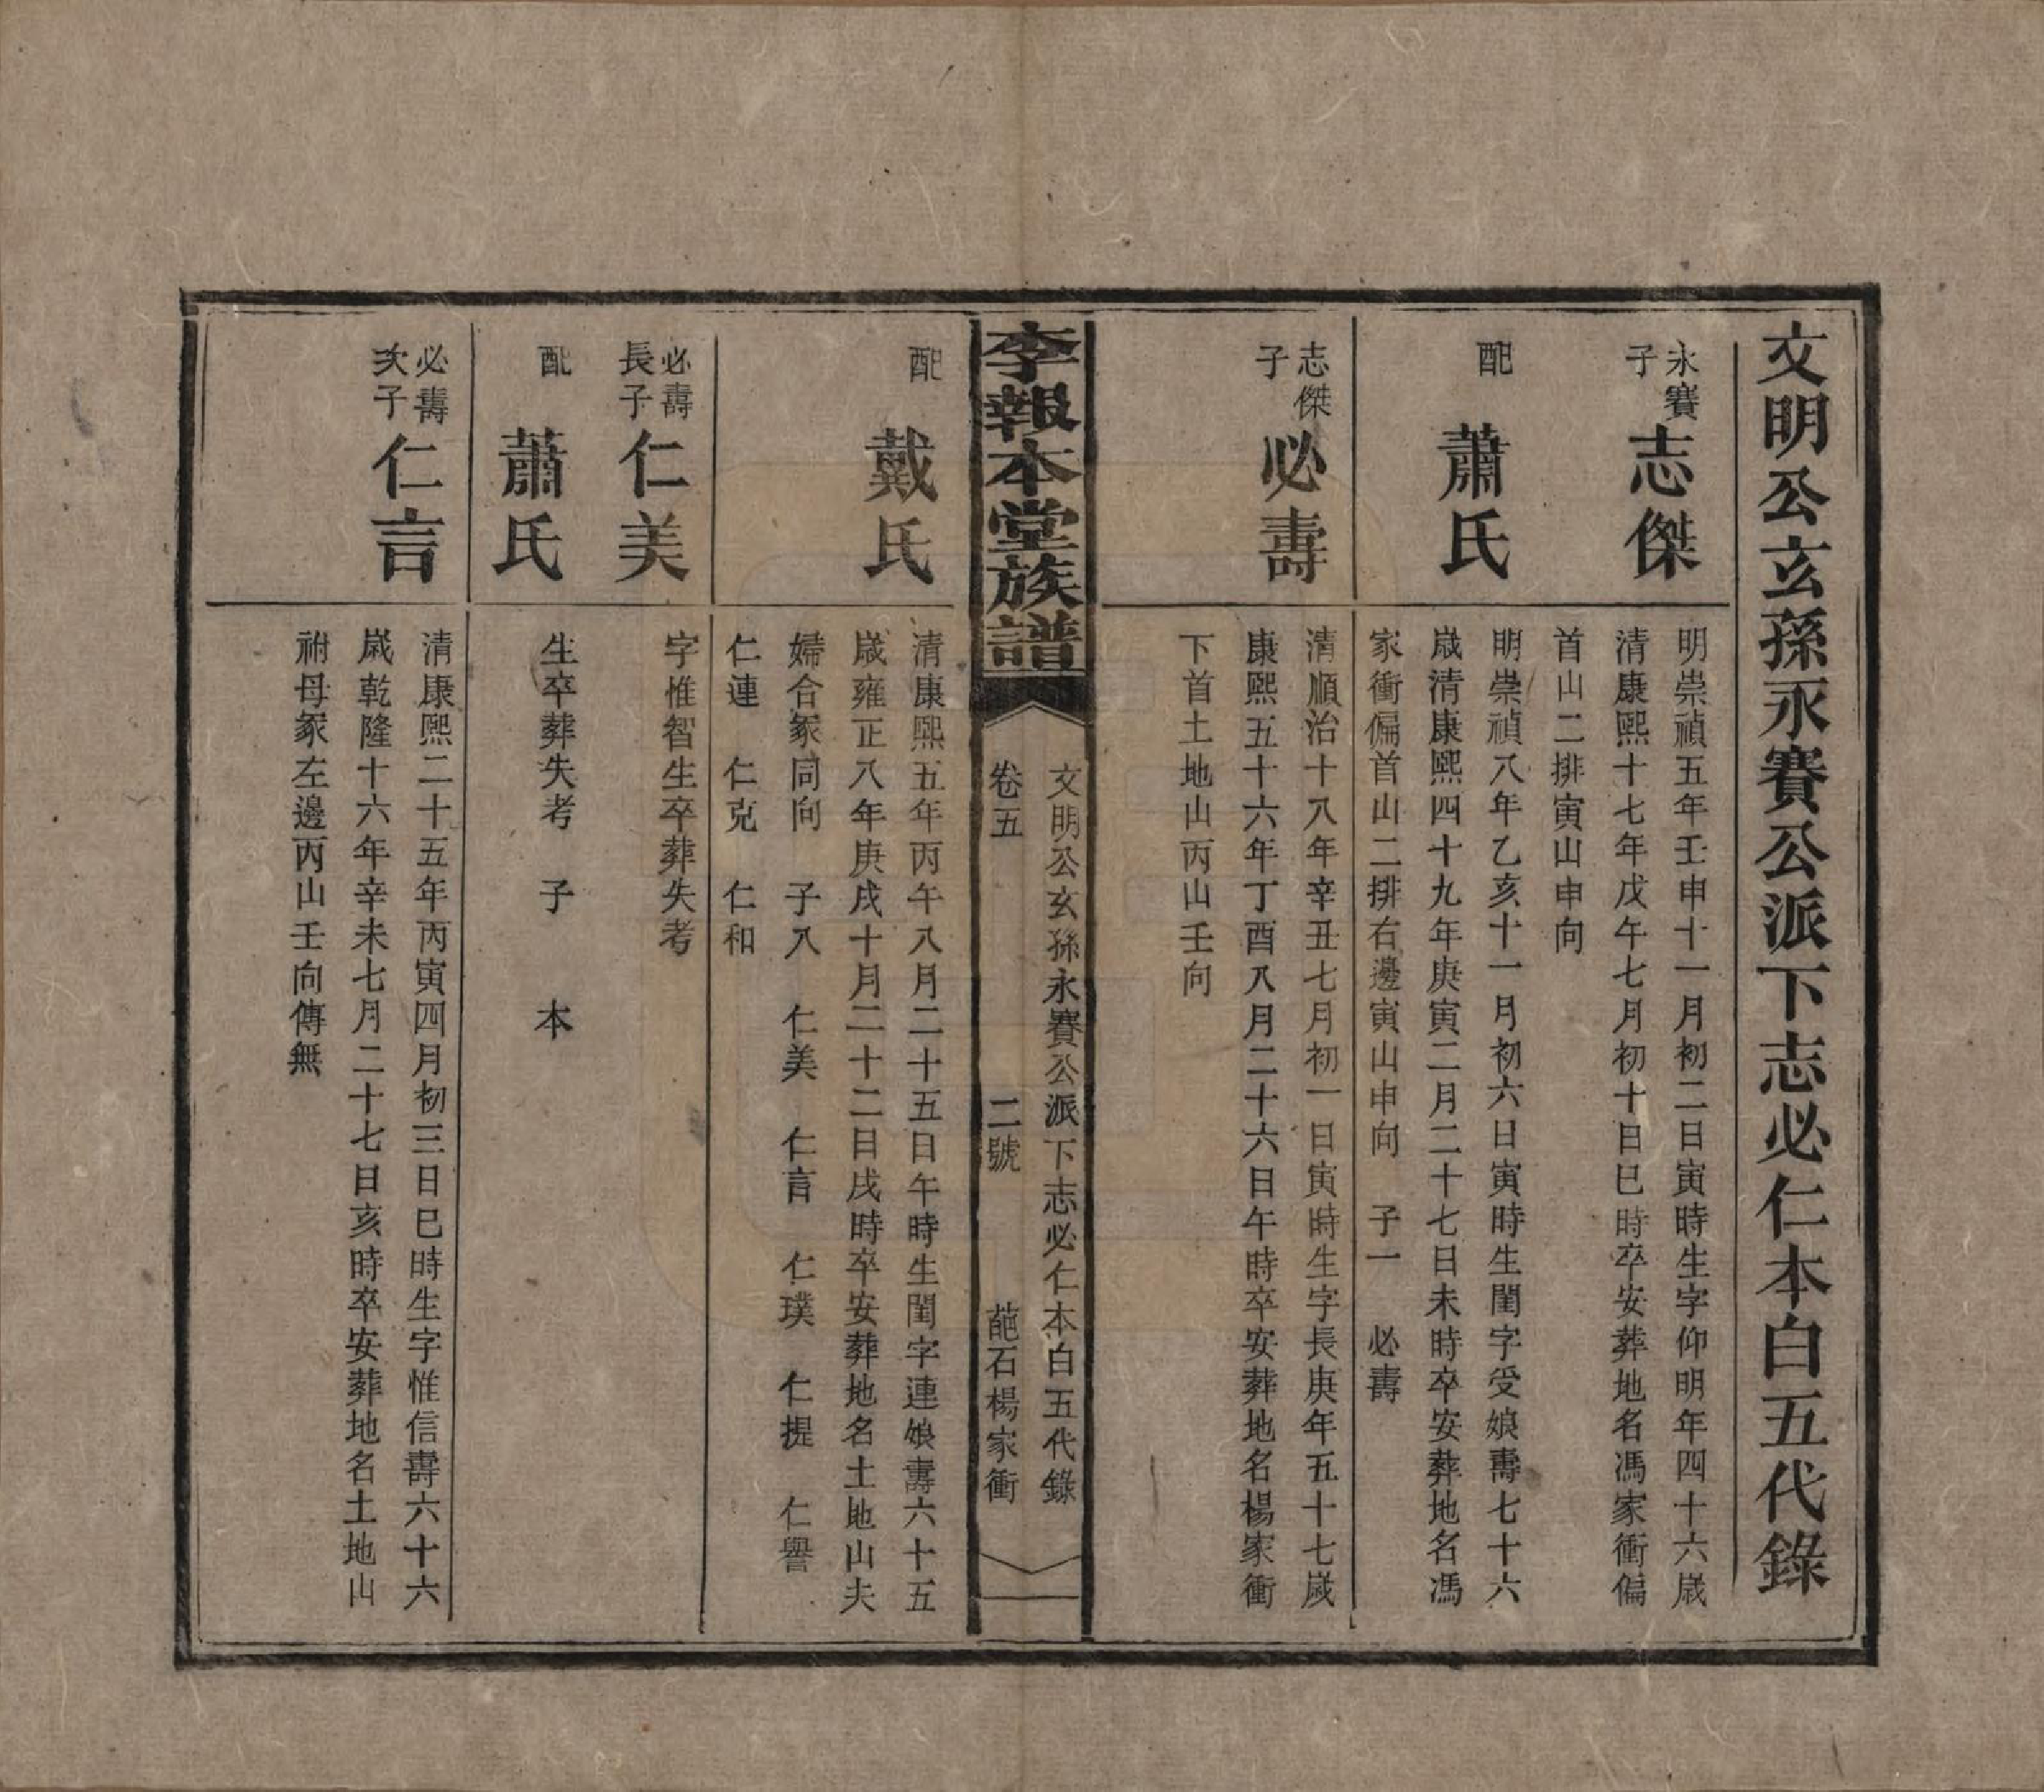 文明公玄孫永賽公派下志必仁本白五代錄
永賽
子
志傑
明崇禎五年壬申十一月初二日寅時生字仰明年四十六歲
清康熙十七年戊午七月初十日巳時卒安葬地名馮家衝偏
首山二排寅山申向
配
蕭氏
明崇禎八年乙亥十一月初六日寅時生閨字受娘壽七十六
歲清康熙四十九年庚寅二月二十七日未時卒安葬地名馮
家衝偏首山二排右邊寅山申向 子一 必壽
志傑
子
必壽
清順治十八年辛丑七月初一日寅時生字長庚年五十七歲
康熙五十六年丁酉八月二十六日午時卒安葬地名楊家衝
下首土地山丙山壬向
李報本堂族譜
文明公玄孫永賽公派下志必仁本白五代錄
卷五 二號 葩石楊家衝
配
戴氏
清康熙五年丙午八月二十五日午時生閨字連娘壽六十五
歲雍正八年庚戌十月二十二日戌時卒安葬地名土地山夫
婦合冢同向 子八 仁美 仁言 仁璞 仁提 仁譽
仁連 仁克 仁和
必壽
長子
仁美
字惟智生卒葬失考
配
蕭氏
生卒葬失考 子 本
必壽
次子
仁言
清康熙二十五年丙寅四月初三日巳時生字惟信壽六十六
歲乾隆十六年辛未七月二十七日亥時卒安葬地名土地山
祔母冢左邊丙山壬向傳無